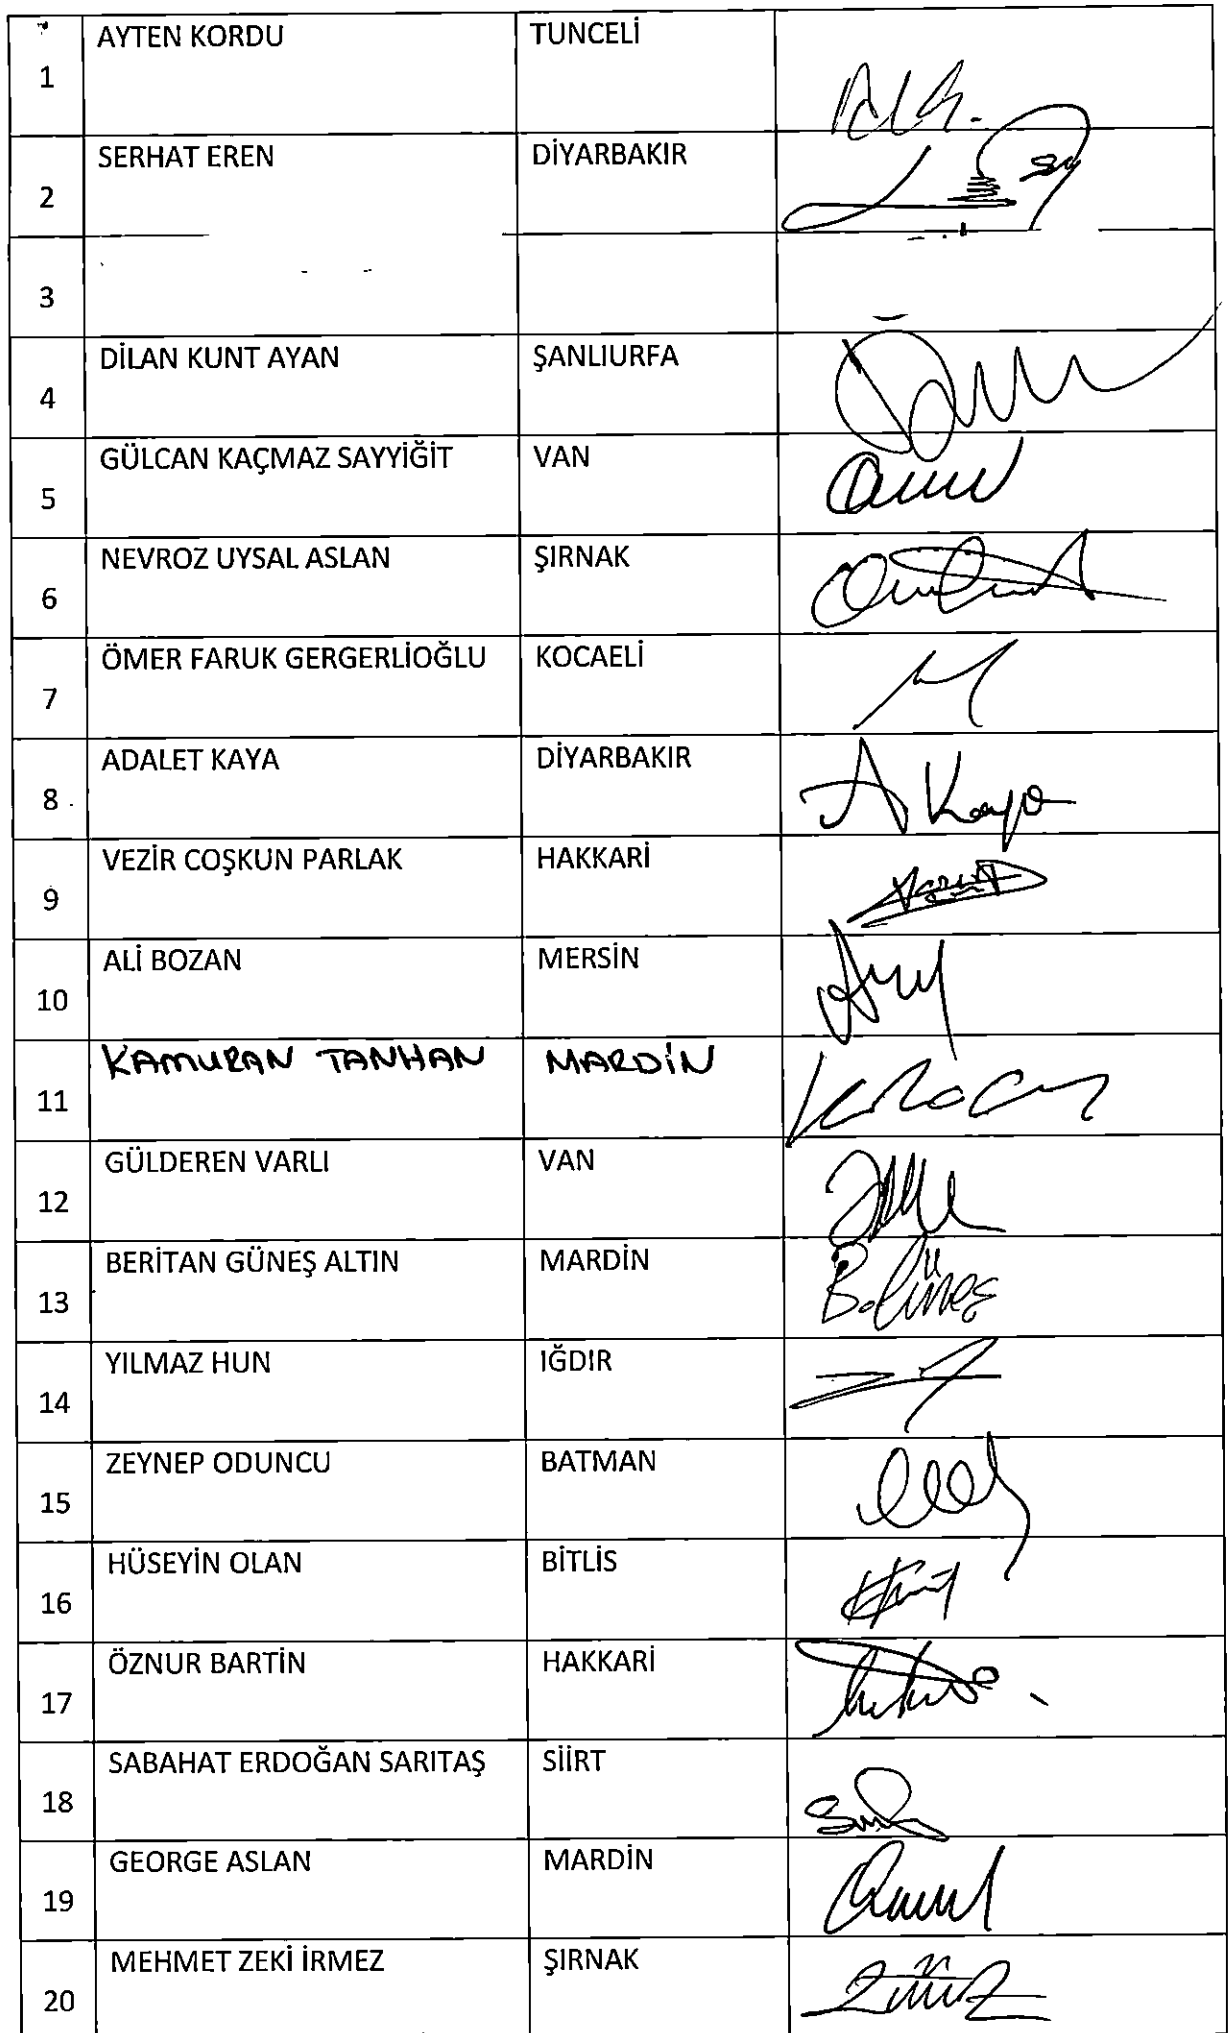 1 AYTEN KORDU TUNCELİ
2 SERHAT EREN DİYARBAKIR
3
4 DİLAN KUNT AYAN ŞANLIURFA
5 GÜLCAN KAÇMAZ SAYYİĞİT VAN
6 NEVROZ UYSAL ASLAN ŞIRNAK
7 ÖMER FARUK GERGERLİOĞLU KOCAELİ
8 ADALET KAYA DİYARBAKIR A Kaya
9 VEZİR COŞKUN PARLAK HAKKARİ
10 ALİ BOZAN MERSİN
11 KAMURAN TANHAN MARDİN
12 GÜLDEREN VARLI VAN
13 BERİTAN GÜNEŞ ALTIN MARDİN B.Güneş
14 YILMAZ HUN IĞDIR
15 ZEYNEP ODUNCU BATMAN
16 HÜSEYİN OLAN BİTLİS
17 ÖZNUR BARTİN HAKKARİ
18 SABAHAT ERDOĞAN SARITAŞ SİİRT
19 GEORGE ASLAN MARDİN
20 MEHMET ZEKİ İRMEZ ŞIRNAK